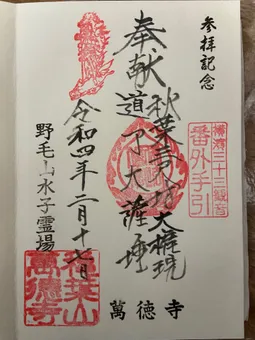 参拝記念
奉献 秋葉三尺坊大権現
道了大薩埵
令和四年二月十七日
野毛山水子霊場
萬徳寺
番外手引
秋葉山
萬徳寺